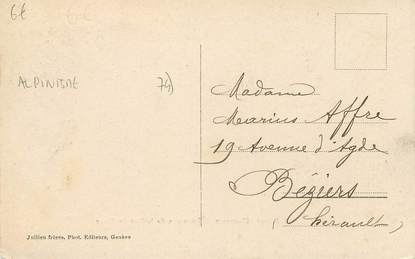 6€
ALPINISME
74)
Madame
Marius Affre
19 Avenue d'Agde
Béziers
(Hérault)
Jullien frères, Phot. Editeurs, Genève